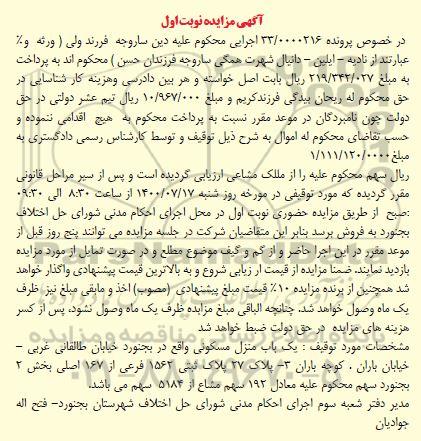 آگهی مزایده نوبت اول
در خصوص پرونده ۳۳/۰۰۰۰۲۱۶ اجرایی محکوم علیه دین ساروجه فرزند ولی ( ورثه و%
عبارتند از نادیه – ایلین – دانیال شهرت همگی ساروجه فرزندان حسن ) محکوم اند به پرداخت
به مبلغ ۲۱۹/۳۴۲/۰۲۷ ریال بابت اصل خواسته و هر بین دادرسی وهزینه کار شناسایی در
حق محکوم له ریحان بیدگی فرزندکریم و مبلغ ۱۰/۹۶۷/۰۰۰ ریال تیم عشر دولتی در حق
دولت چون نامبردگان در موعد مقرر نسبت به پرداخت محکوم به هیچ اقدامی ننموده و
حسب تقاضای محکوم له اموال به شرح ذیل توقیف و توسط کارشناس رسمی دادگستری به
مبلغ ۱/۱۱۱/۱۲۰/۰۰۰۰
ریال سهم محکوم علیه را از مللک مشاعی ارزیابی گردیده است و پس از سیر مراحل قانونی
مقرر گردیده که مورد توقیفی در مورخه روز شنبه ۱۴۰۰/۰۷/۱۷ از ساعت ۸:۳۰ الی ۰۹:۳۰
:صبح از طریق مزایده حضوری نوبت اول در محل اجرای احکام مدنی شورای حل اختلاف
بجنورد به فروش برسد بنابر این متقاضیان شرکت در جلسه مزایده می توانند پنج روز قبل از
موعد مقرر در این اجرا حاضر و از کم و کیف موضوع مطلع و در صورت تمایل از مورد مزایده
بازدید نمایند. ضمنا مزایده از قیمت ار زیابی شروع و به بالاترین قیمت پیشنهادی واگذار خواهد
شد همچنین از برنده مزایده ۱۰٪ قیمت مبلغ پیشنهادی (مصوب) اخذ و مابقی مبلغ نیز ظرف
یک ماه وصول خواهد شد. چنانچه الباقی مبلغ مزایده ظرف یک ماه وصول نشود، پس از کسر
هزینه های مزایده در حق دولت ضبط خواهد شد
مشخصات مورد توقیف : یک باب منزل مسکونی واقع در بجنورد خیابان طالقانی غربی –
خیابان باران . کوچه باران ۳– پلاک ۲۷ پلاک ثبتی ۱۵۶۲ فرعی از ۱۶۷ اصلی بخش ۲
بجنورد سهم محکوم علیه معادل ۱۹۲ سهم مشاع از ۵۱۸۴ سهم می باشد.
مدیر دفتر شعبه سوم اجرای احکام مدنی شورای حل اختلاف شهرستان بجنورد– فتح اله
جوادیان